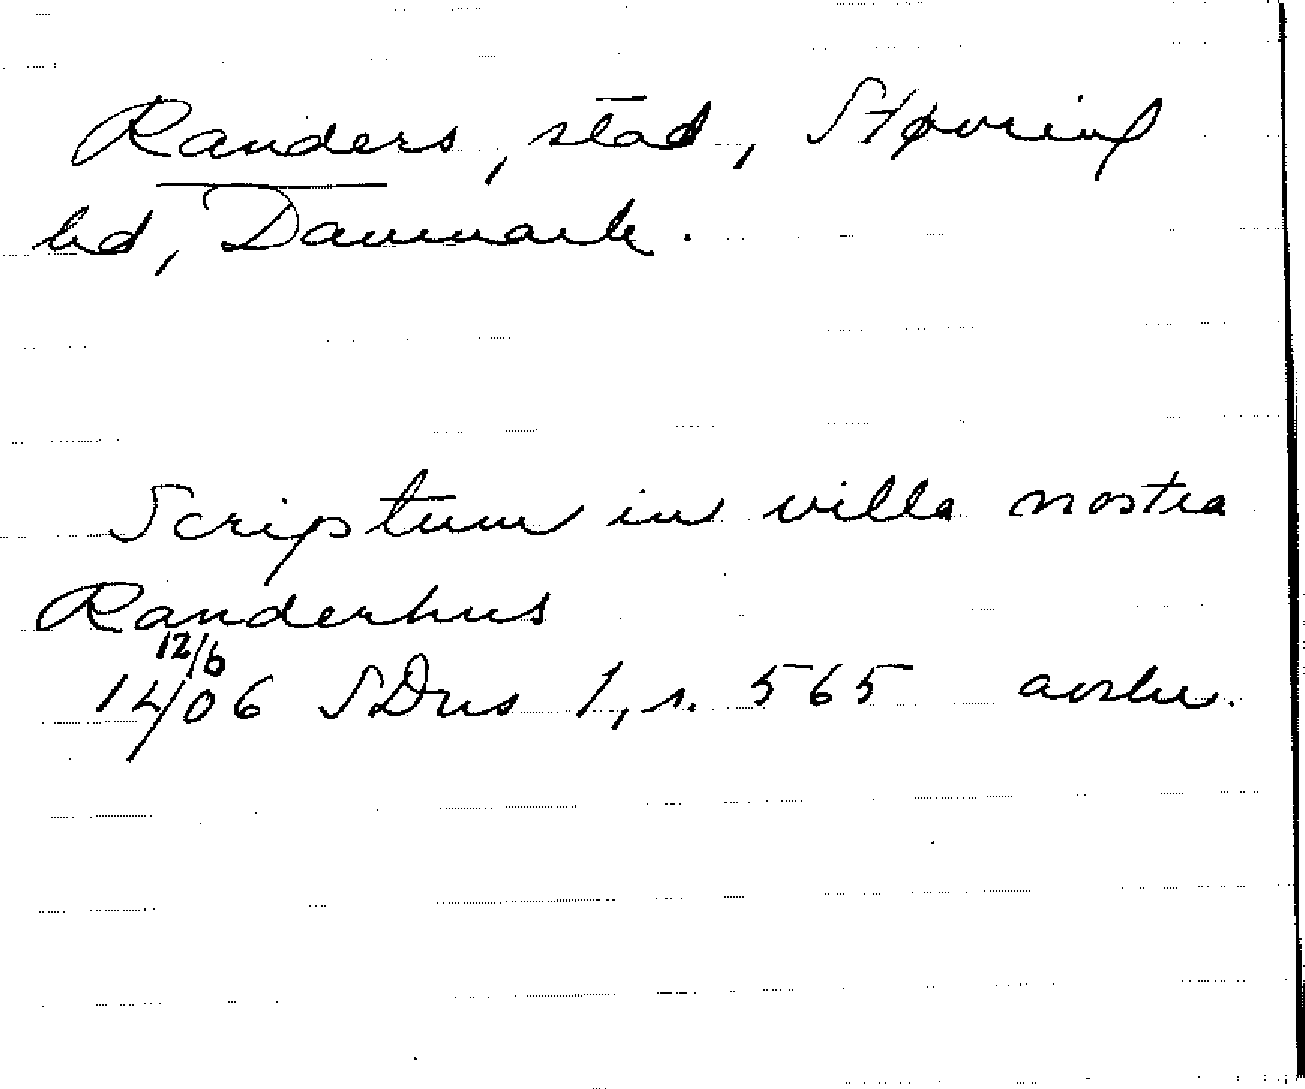 Randers, stad, Støvring
hd, Danmark.
Scriptum in villa nostra
Randerhus
12/6
1406 SDns 1, s. 565 avskr.